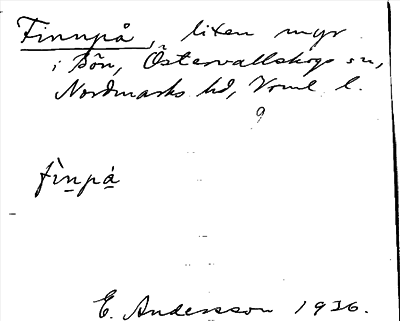 Finnpå, liten myr
i Bön, Östervallskogs sn,
Nordmarks hd, Vrml l.
9
fìnpá
E. Andersson 1936.